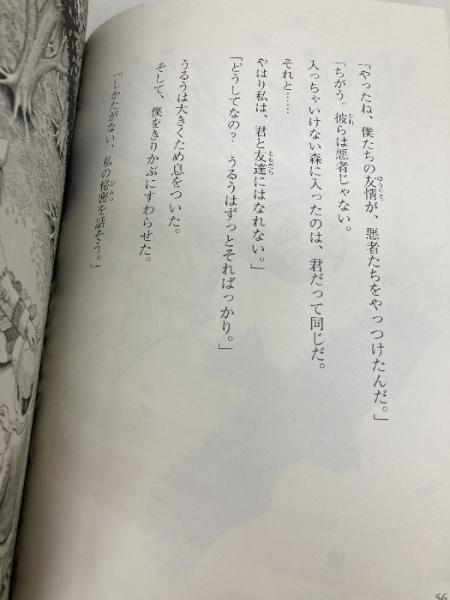 「やったね、僕たちの友情が、悪者たちをやっつけたんだ。」
「ちがう。彼らは悪者じゃない。
入っちゃいけない森に入ったのは、君だって同じだ。
それと……
やはり私は、君と友達にはなれない。」
「どうしてなの？　うるうはずっとそればっかり。」
うるうは大きくため息をついた。
そして、僕をきりかぶにすわらせた。
「しかたがない、私の秘密を話そう。」
56